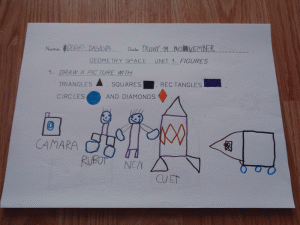 Name: DAVILA Date: NOVEMBER
GEOMETRY SPACE UNIT 1: FIGURES
1. DRAW A PICTURE WITH
TRIANGLES , SQUARES , RECTANGLES ,
CIRCLES AND DIAMONDS
CAMARA
ROBOT
NEN
CUET